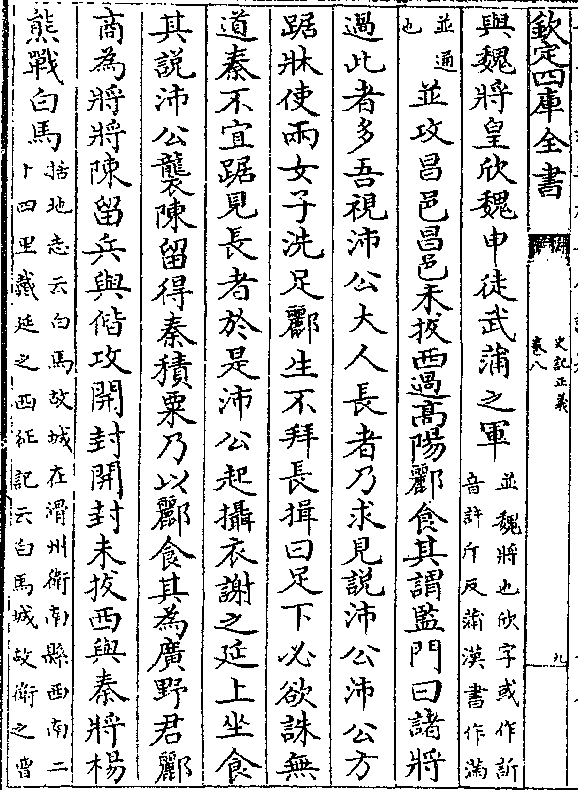 欽定四庫全書
史記正義
卷八
九
與魏將皇欣魏申徒武蒲之軍並魏將也欣字或作訢音許斤反蒲漢書作滿
並通也並攻昌邑昌邑未拔西過高陽酈食其謂監門曰諸將
過此者多吾視沛公大人長者乃求見說沛公沛公方
踞牀使兩女子洗足酈生不拜長揖曰足下必欲誅無
道秦不宜踞見長者於是沛公起攝衣謝之延上坐食
其說沛公襲陳留得秦積粟乃以酈食其為廣野君酈
商為將將陳留兵與偕攻開封開封未拔西與秦將楊
熊戰白馬括地志云白馬故城在滑州衛南縣西南二十四里戴延之西征記云白馬城故衛之曹